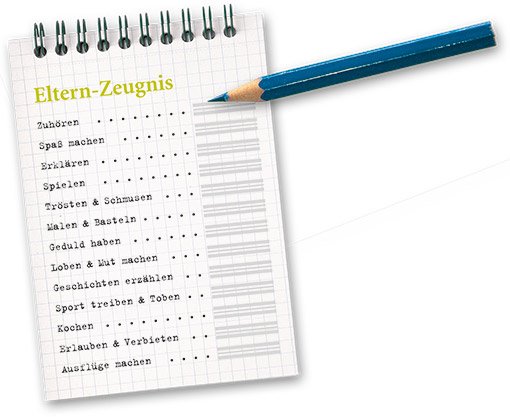 Eltern-Zeugnis
Zuhören . . . . . . . .
Spaß machen . . . . . .
Erklären . . . . . . .
Spielen . . . . . . . .
Trösten & Schmusen . . .
Malen & Basteln . . . . .
Geduld haben . . . . . .
Loben & Mut machen . . .
Geschichten erzählen . .
Sport treiben & Toben . .
Kochen . . . . . . . . .
Erlauben & Verbieten . .
Ausflüge machen . . . .